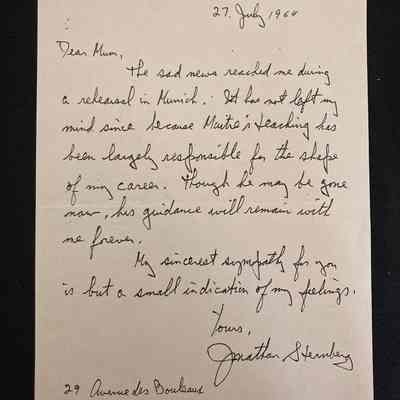 27. July 1964
Dear Mum,
The sad news reached me during
a rehearsal in Munich. It has not left my
mind since because Maitre's teaching has
been largely responsible for the shape
of my career. Though he may be gone
now, his guidance will remain with
me forever.
My sincerest sympathy for you
is but a small indication of my feelings.
Yours,
Jonathan Sternberg
29 Avenue des Bouleaux